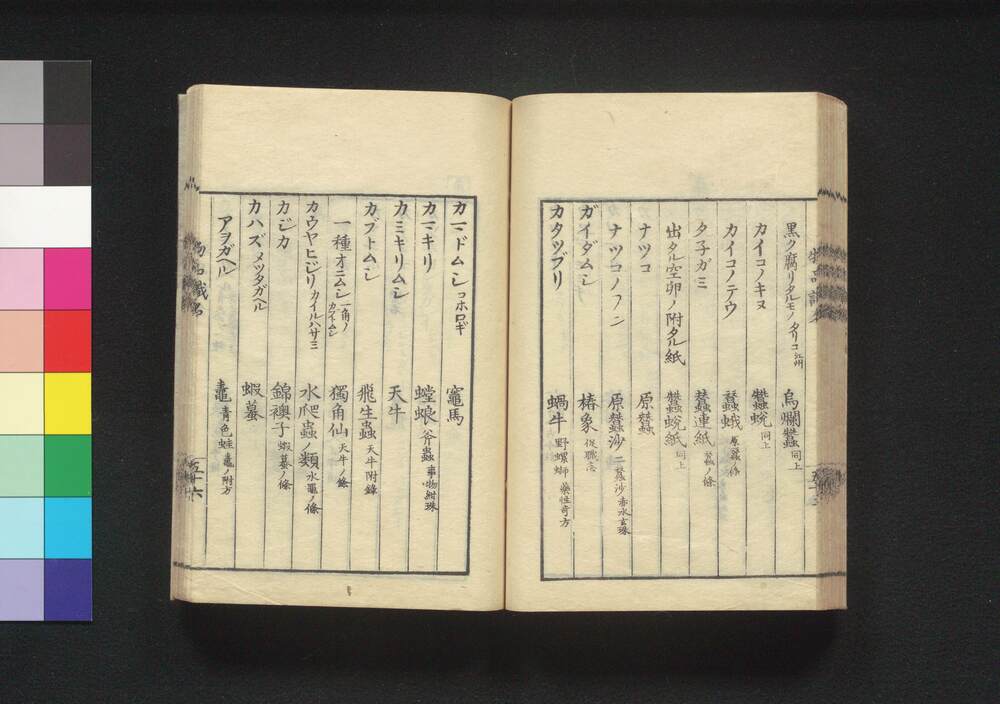 黒ク腐リタルモノ タリコ 江州 烏爛蠶 同上
カイコノキヌ 蠶蛻 同上
カイコノテウ 蠶蛾 原蠶ノ條
タ子ガミ 蠶連紙 蠶ノ條
出タル空卵ノ附タル紙 蠶蛻紙 同上
ナツコ 原蠶
ナツコノフン 原蠶沙 二蠶沙 赤水玄珠
ガイダムシ 椿象
カタツブリ 蝸牛 野螺螄 藥性奇方
カマドムシ コホロギ 竈馬
カマキリ 螳蜋 斧蟲 事物紺珠
カミキリムシ 天牛
カブトムシ 飛生蟲 天牛附錄
一種オニムシ 一角ノカブトムシ 獨角仙 天牛ノ條
カウヤヒジリ カイルハサミ 水爬蟲ノ類 水黽ノ條
カジカ 錦襖子 蝦蟇ノ條
カハズ メツタガヘル 蝦蟇
アヲガヘル 鼃 青色蛙 鼃ノ附方
物品識名
五十六